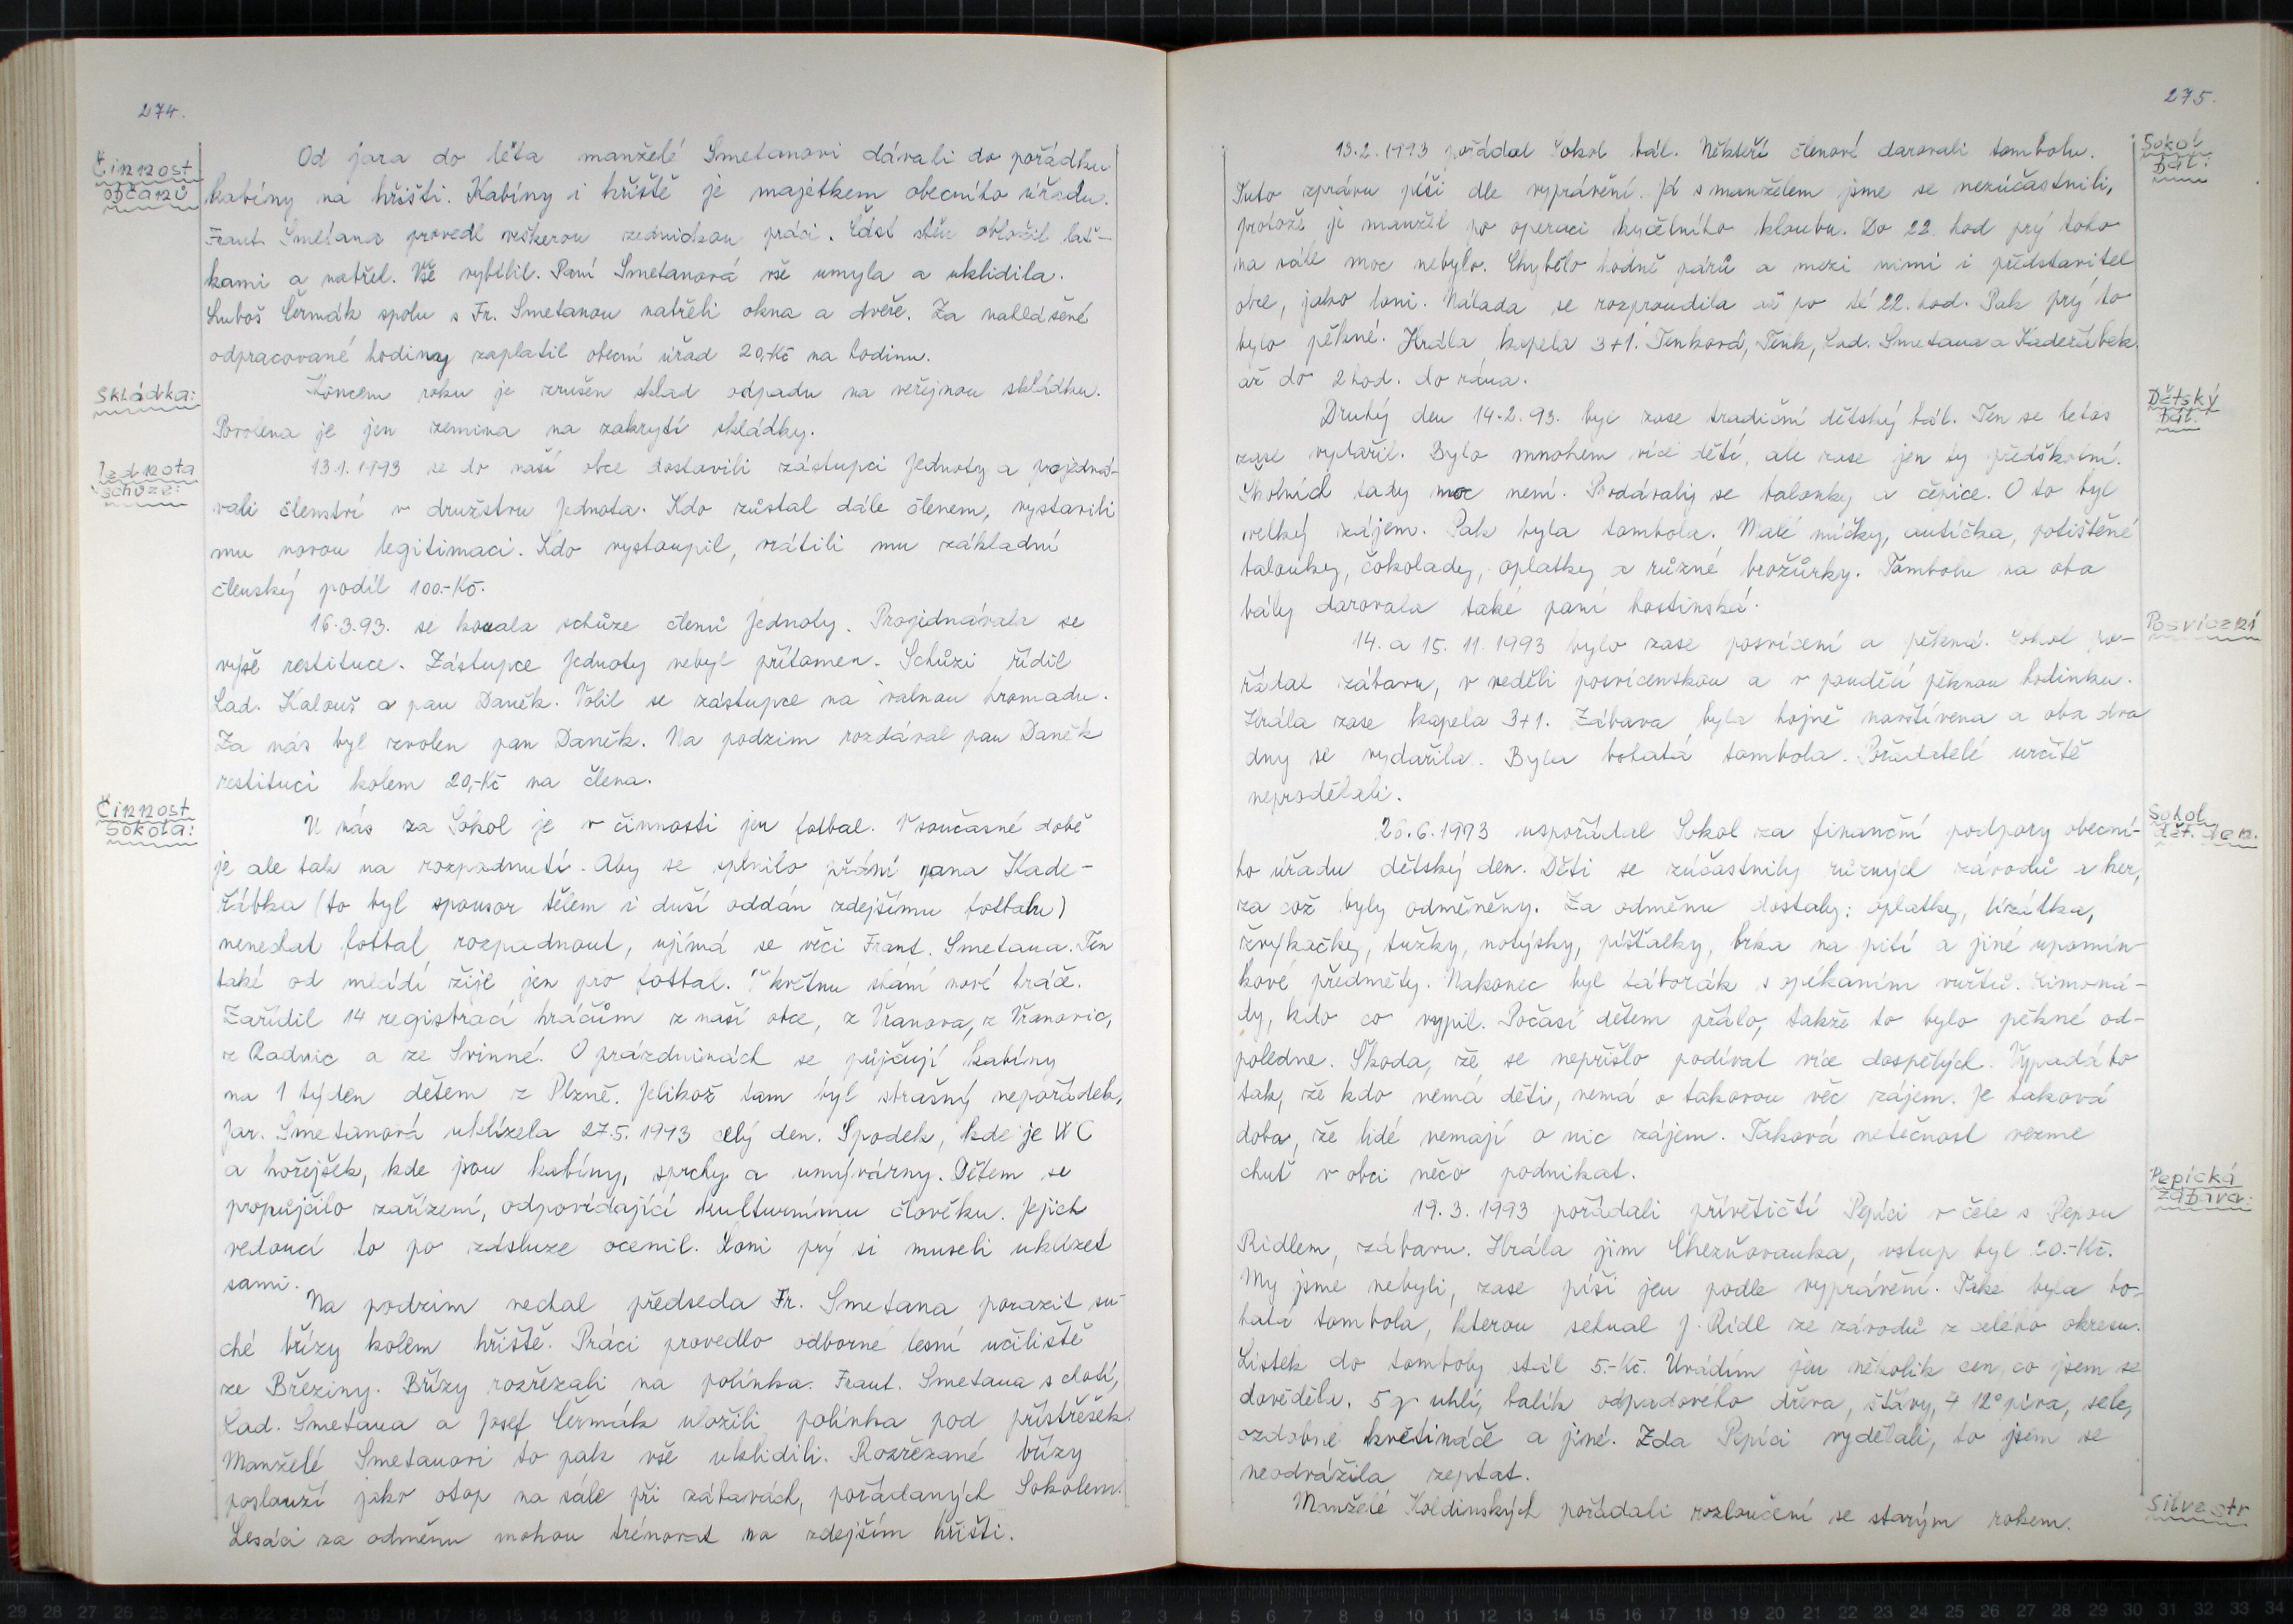 274.
Činnost
občanů
Od jara do léta manželé Smetanovi dávali do pořádku
kabiny na hřišti. Kabiny i hřiště je majetkem obecního úřadu.
Frant. Smetana provedl veškerou zednickou práci. Část stěn obložil lať-
kami a natřel. Vše vybílil. Paní Smetanová vše umyla a uklidila.
Luboš Čermák spolu s Fr. Smetanou natřeli okna a dveře. Za nahlášené
odpracované hodiny zaplatil obecní úřad 20,-Kč na hodinu.
Skládka:
Koncem roku je zrušen sklad odpadu na veřejnou skládku.
Povolena je jen zemina na zakrytí skládky.
Jednota
schůze:
13.1.1993 se do naší obce dostavili zástupci Jednoty a projedná-
vali členství v družstvu Jednota. Kdo zůstal dále členem, vystavili
mu novou legitimaci. Kdo vystoupil, vrátili mu základní
členský podíl 100.-Kč.
16.3.93. se konala schůze členů Jednoty. Projednávala se
výše restituce. Zástupce Jednoty nebyl přítomen. Schůzi řídil
Lad. Kalouš a pan Daněk. Volil se zástupce na valnou hromadu.
Za nás byl zvolen pan Daněk. Na podzim rozdával pan Daněk
restituci kolem 20,-Kč na člena.
Činnost
Sokola:
U nás za Sokol je v činnosti jen fotbal. V současné době
je ale tak na rozpadnutí. Aby se splnilo přání pana Kade-
řábka (to byl sponsor tělem i duší oddán zdejšímu fotbalu)
nenedat fotbal rozpadnout, ujímá se věci Frant. Smetana. Ten
také od mládí žije jen pro fotbal. V květnu shání nové hráče.
Zařídil 14 registrací hráčům z naší obce, z Vranova, z Vranovic,
z Radnic a ze Svinné. O prázdninách se půjčují kabiny
na 1 týden dětem z Plzně. Jelikož tam byl strašný nepořádek,
Jar. Smetanová uklízela 27.5.1993 celý den. Spodek, kde je WC
a hořejšek, kde jsou kabiny, sprchy a umývárny. Dětem se
propůjčilo zařízení, odpovídající kulturnímu člověku. Jejich
vedoucí to po zásluze ocenil. Loni prý si museli uklízet
sami.
Na podzim nechal předseda Fr. Smetana porazit su-
ché břízy kolem hřiště. Práci provedlo odborné lesní učiliště
ze Březiny. Břízy rozřezali na polínka. Frant. Smetana s chotí,
Lad. Smetana a Josef Čermák uložili polínka pod přístřešek.
Manželé Smetanovi to pak vše uklidili. Rozřezané břízy
poslouží jako otop na sále při zábavách, pořádaných Sokolem.
Lesáci za odměnu mohou trénovat na zdejším hřišti.
275.
Sokol
bál:
13.2.1993 pořádal Sokol bál. Někteří členové darovali tombolu.
Tuto zprávu píši dle vyprávění. Já s manželem jsme se nezúčastnili,
protože je manžel po operaci kyčelního kloubu. Do 22. hod prý toho
na sále moc nebylo. Chybělo hodně párů a mezi nimi i představitel
obce, jako loni. Nálada se rozproudila až po té 22. hod. Pak prý to
bylo pěkné. Hrála kapela 3+1. Tenková, Tenk, Lad. Smetana a Kadeřábek
až do 2 hod. do rána.
Dětský
bál.
Druhý den 14.2.93. byl zase tradiční dětský bál. Ten se letos
zase vydařil. Bylo mnohem více dětí, ale zase jen ty předškolní.
Školních tady moc není. Prodávaly se balonky a čepice. O to byl
velký zájem. Pak byla tombola. Malé míčky, autíčka, potištěné
balonky, čokolady, oplatky a různé brožůrky. Tombolu na oba
bály darovala také paní hostinská.
Posvícení
14. a 15. 11. 1993 bylo zase posvícení a pěkná. Sokol po-
řádal zábavu, v neděli posvícenskou a v pondělí pěknou hodinku.
Hrála zase kapela 3+1. Zábava byla hojně navštívena a oba dva
dny se vydařila. Byla bohatá tombola. Pořadatelé určitě
neprodělali.
Sokol
dět. den.
26.6.1993 uspořádal Sokol za finanční podpory obecní-
ho úřadu dětský den. Děti se zúčastnily různých závodů a her,
za což byly odměněny. Za odměnu dostaly: oplatky, lízátka,
žvýkačky, tužky, notýsky, píšťalky, brka na pití a jiné upomín-
kové předměty. Nakonec byl táborák s opékáním vuřtů. Limoná-
dy, kdo co vypil. Počasí dětem přálo, takže to bylo pěkné od-
poledne. Škoda, že se nepřišlo podívat více dospělých. Vypadá to
tak, že kdo nemá děti, nemá o takovou věc zájem. Je taková
doba, že lidé nemají o nic zájem. Taková netečnost vezme
chuť v obci něco podnikat.
Pepická
zábava:
19.3.1993 pořádali přívětičtí Pepíci v čele s Pepou
Ridlem, zábavu. Hrála jim Chezňovanka, vstup byl 20.-Kč.
My jsme nebyli, zase píši jen podle vyprávění. Také byla bo-
hatá tombola, kterou sehnal J. Ridl ze závodů z celého okresu.
Lístek do tomboly stál 5.-Kč. Uvádím jen několik cen, co jsem se
dověděla. 5 q uhlí, balík odpadového dřeva, šťávy, 4 12° piva, sele,
ozdobné květináče a jiné. Zda Pepíci vydělali, to jsem se
neodvážila zeptat.
Silvestr
Manželé Koldinských pořádali rozloučení se starým rokem.